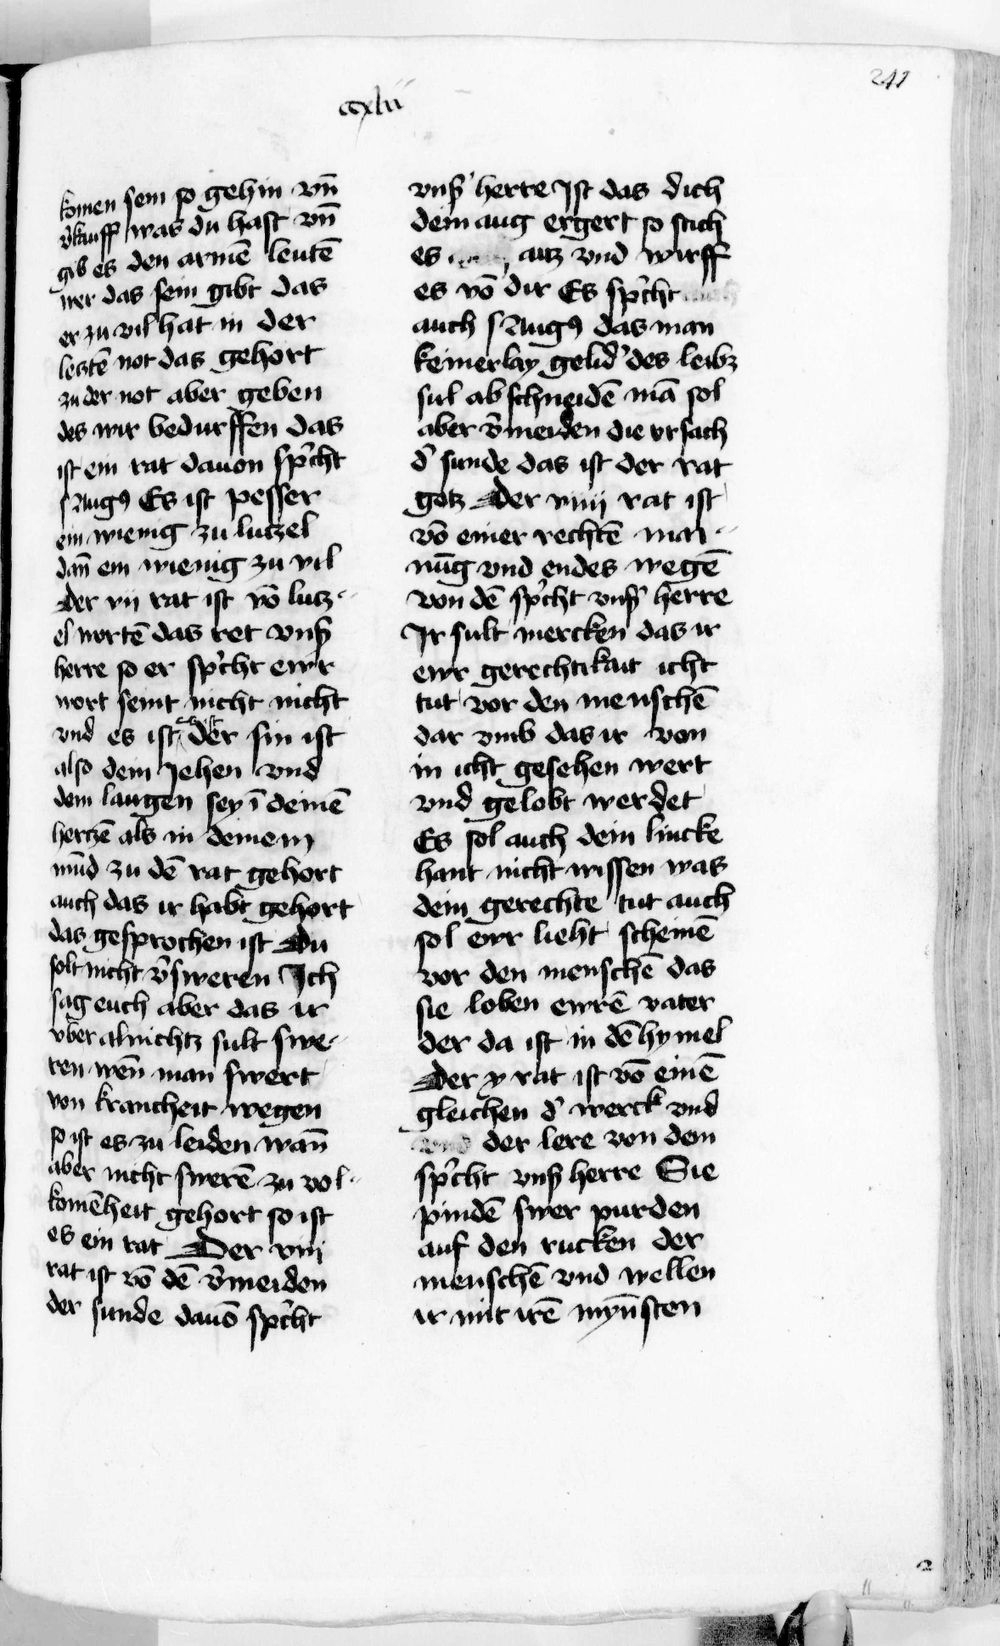 ccxlii
241
komen sein so gehin vn̄
v̓kauff was du hast vn̄
gib es den armē leutē
wer das sein gibt das
er zu vil hat in der
letztē not das gehort
zu der not aber geben
des wir bedurffen das
ist ein rat dauon sp̓cht
s Augꝰ Es ist pesser
ein wienig zu lutzel
dan̄ ein wienig zu vil
Der vij rat ist vō lutz-
el wortē das ret vnſ̓
herre so er sp̓cht ewr
wort seint nicht nicht
vnd es ist das ist der sin ist
also dein Jehen vnd
dein laugen sey ī deinē
hertzē als in deinem
mūd zu dē rat gehort
auch das ir habt gehort
das gesprochen ist Du
solt nicht v̓sweren Ich
sag euch aber das ir
vber alnichtz sult swe-
ren wen̄ man swert
von krancheit wegen
so ist es zu leiden wan̄
aber nicht swerē zu vol-
komēheit gehort so ist
es ein rat Der viij
rat ist vō dē v̓meiden
der sunde dauō sp̓cht
vnſ̓ herre Ist das dich
dein aug ergert so stich
es auz vnd wirff
es vō dir Es sp̓cht
auch s Augꝰ das man
keinerlay gelid̓ des leibz
sul ab schneidē mā sol
aber v̓meiden die vrsach
d̓ sunde das ist der rat
gotz Der viiij rat ist
vō einer rechtē mai-
nūg vnd endes wegē
von dē sp̓cht vnſ̓ herre
Ir sult mercken das ir
ewr gerechtikait icht
tut vor den menschē
dar vmb das ir von
in icht gesehen wert
vnd gelobt werdet
Es sol auch dein lincke
hant nicht wissen was
dein gerechte tut auch
sol ewr lieht scheinē
vor den menschē das
sie loben ewrē vater
der da ist in dē hymel
Der x rat ist vō einē
gleichen d̓ werck vnd
vnd der lere von dem
sp̓cht vnſ̓ herre Sie
pindē swer purden
auf den rucken der
menschē vnd wellen
ir mit irē myn̄sten